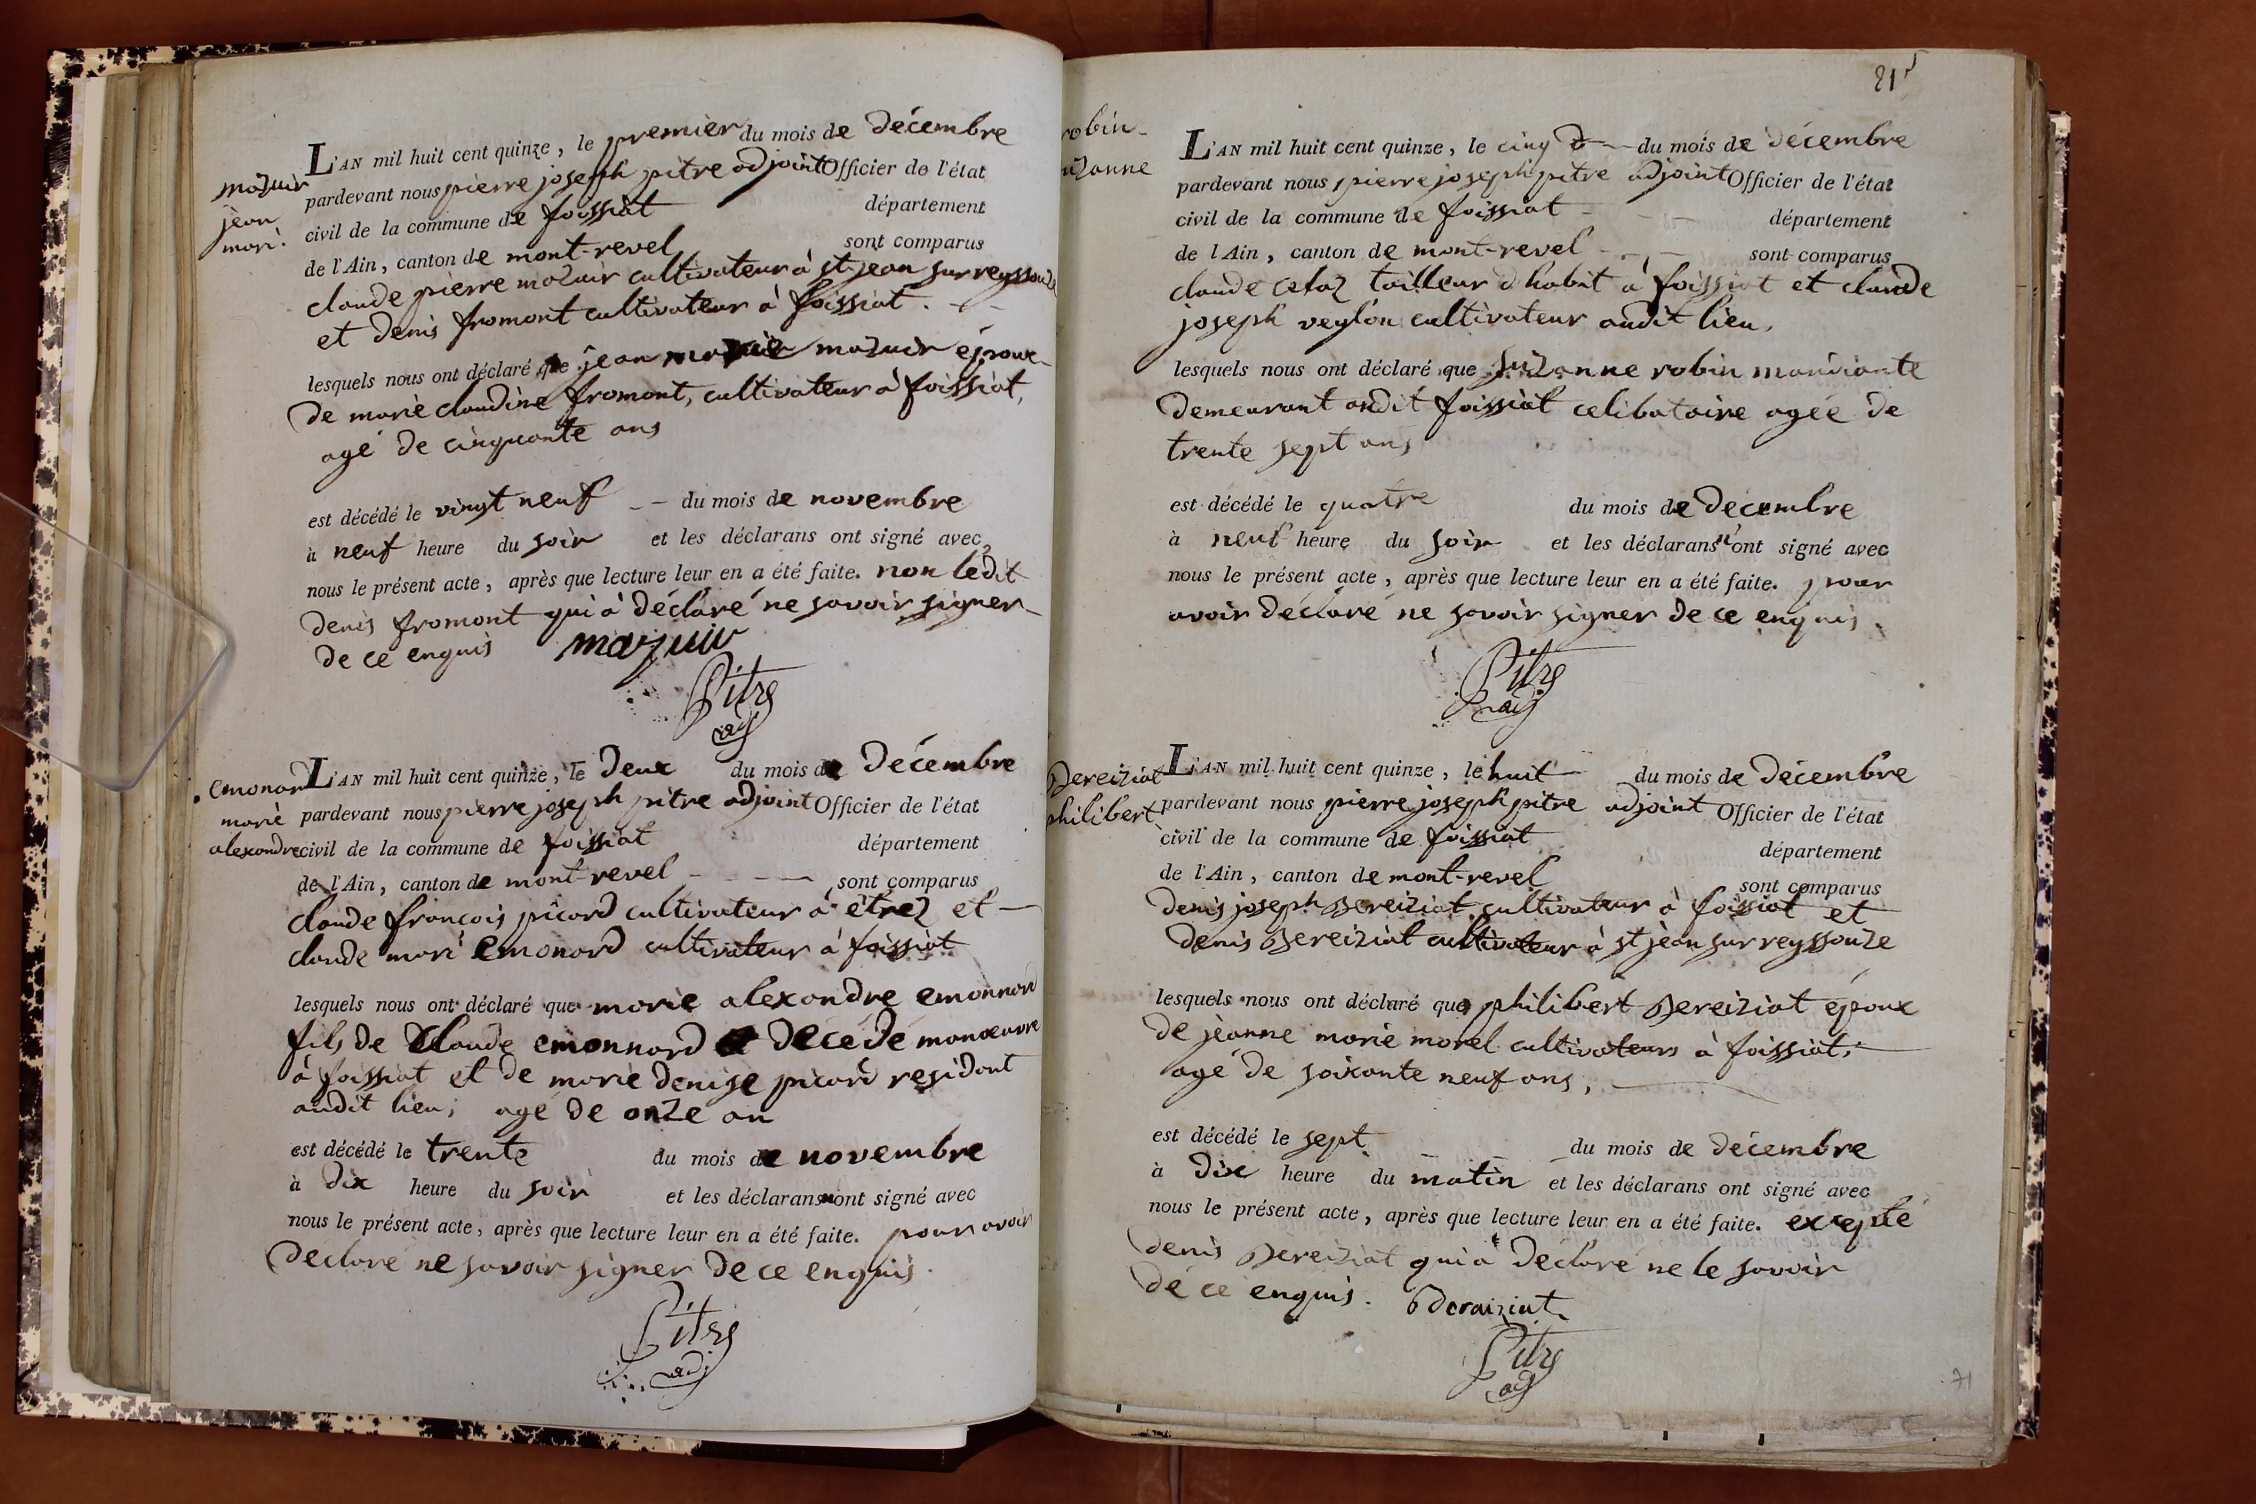 mazuir
jean
mari.
L'AN mil huit cent quinze, le premier du mois de décembre
pardevant nous pierre joseph pitre adjoint Officier de l'état
civil de la commune de foissiat département
de l'Ain, canton de mont-revel sont comparus
claude pierre mazuir cultivateur à st jean sur reyssouze
et denis fromont cultivateur à foissiat.
lesquels nous ont déclaré que jean mazuir époux
de marie claudine fromont, cultivateur à foissiat,
agé de cinquante ans
est décédé le vingt neuf du mois de novembre
à neuf heure du soir et les déclarans ont signé avec
nous le présent acte, après que lecture leur en a été faite. non ledit
denis fromont qui à déclaré ne savoir signer
de ce enquis mazuir
Pitre
adj
emonard
marie
alexandre
L'AN mil huit cent quinze, le deux du mois de décembre
pardevant nous pierre joseph pitre adjoint Officier de l'état
civil de la commune de foissiat département
de l'Ain, canton de mont-revel sont comparus
claude françois picard cultivateur à étrez et
claude mari emonard cultivateur à foissiat
lesquels nous ont déclaré que marie alexandre emonnard
fils de claude emonnard décédé manœuvre
à foissiat et de marie denise picard residant
audit lieu, agé de onze an
est décédé le trente du mois de novembre
à dix heure du soir et les déclarans n'ont signé avec
nous le présent acte, après que lecture leur en a été faite. pour avoir
declaré ne savoir signer de ce enquis.
Pitre
adj
21
robin
uzanne
L'AN mil huit cent quinze, le cinq du mois de décembre
pardevant nous pierre joseph pitre adjoint Officier de l'état
civil de la commune de foissiat département
de l'Ain, canton de mont-revel sont comparus
claude celaz tailleur d habit à foissiat et claude
joseph veylon cultivateur audit lieu,
lesquels nous ont déclaré que suzanne robin mandiante
demeurant audit foissiat celibataire agée de
trente sept ans
est décédé le quatre du mois de décembre
à neuf heure du soir et les déclarans n'ont signé avec
nous le présent acte, après que lecture leur en a été faite. pour
avoir déclaré ne savoir signer de ce enquis.
Pitre
adj
Bereiziat
philibert
L'AN mil huit cent quinze, le huit du mois de décembre
pardevant nous pierre joseph pitre adjoint Officier de l'état
civil de la commune de foissiat département
de l'Ain, canton de mont-revel sont comparus
denis joseph Bereiziat cultivateur à foissiat et
denis Bereiziat cultivateur à st jean sur reyssouze
lesquels nous ont déclaré que philibert Bereiziat époux
de jeanne marie morel cultivateurs à foissiat,
agé de soixante neuf ans,
est décédé le sept du mois de décembre
à dix heure du matin et les déclarans ont signé avec
nous le présent acte, après que lecture leur en a été faite. excepté
denis Bereiziat qui à déclaré ne le savoir
de ce enquis. Beraiziat
Pitre
adj
71